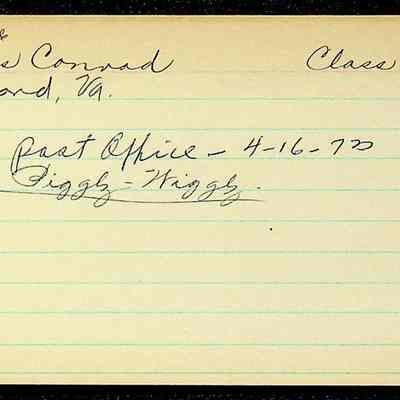 s Conrad Class
ond, Va.
Post Office - 4-16-70
Piggly-Wiggly.